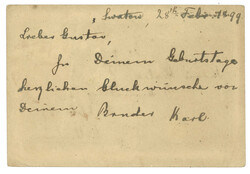 28th Feb 99
Lieber Gustav,
Zu Deinem Geburtstage
herzlichen Glückwünsche von
Deinem Bruder Karl